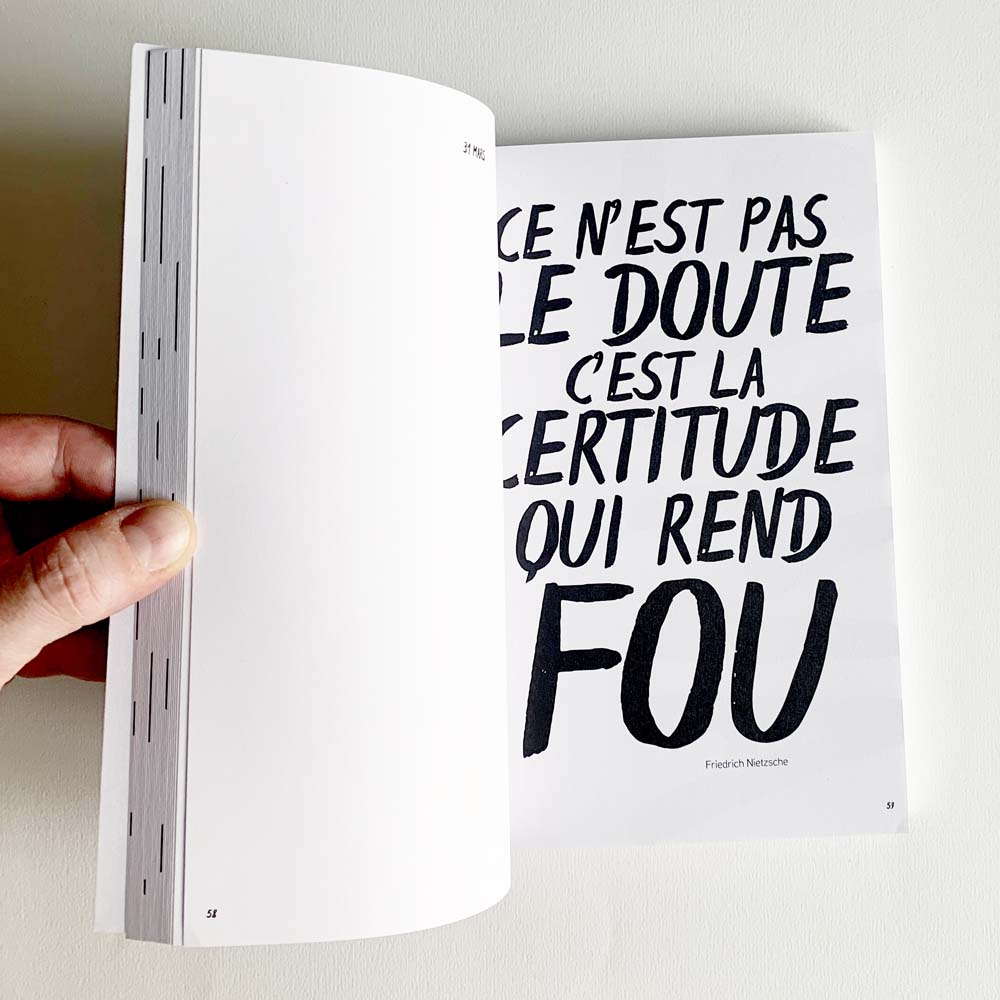 31 MARS
58
CE N'EST PAS
LE DOUTE
C'EST LA
CERTITUDE
QUI REND
FOU
Friedrich Nietzsche
59